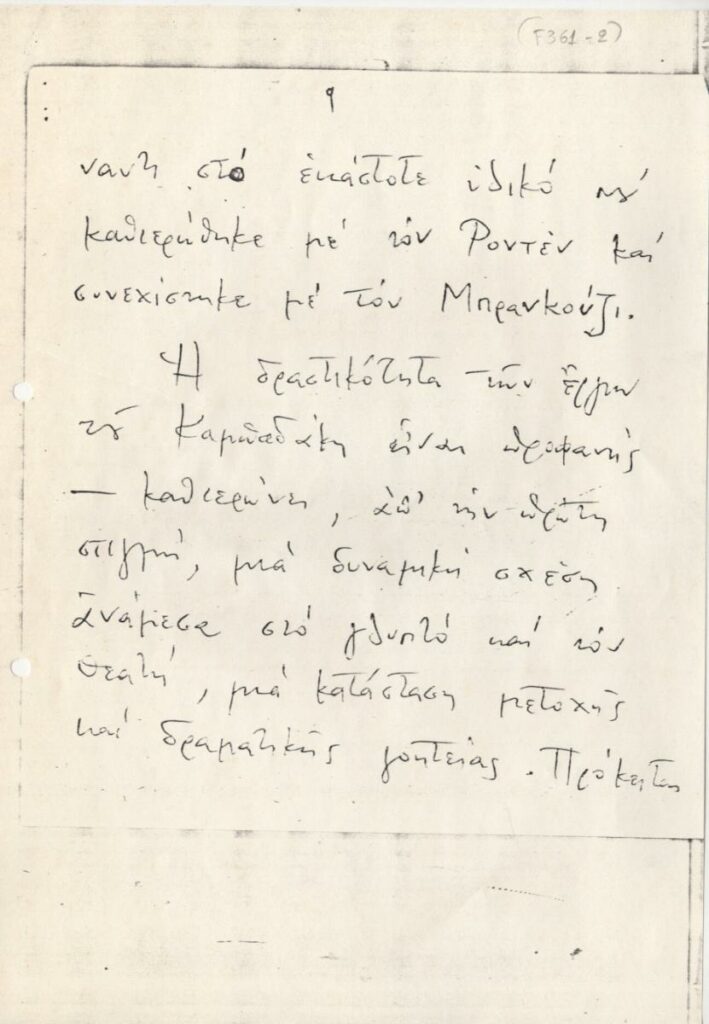 (F361-2)
9
ναντι στό ἑκάστοτε εἰδικό πού
καθιερώθηκε μέ τόν Ροντέν καί
συνεχίστηκε μέ τόν Μπρανκούζι.
Ἡ δραστικότητα τῶν ἔργων
τοῦ Καμπαδάκη εἶναι προφανής
— καθιερώνει, ἀπ' τήν πρώτη
στιγμή, μιά δυναμική σχέση
ἀνάμεσα στό γλυπτό καί τόν
θεατή, μιά κατάσταση μετοχῆς
καί δραματικῆς γοητείας. Πρόκειται